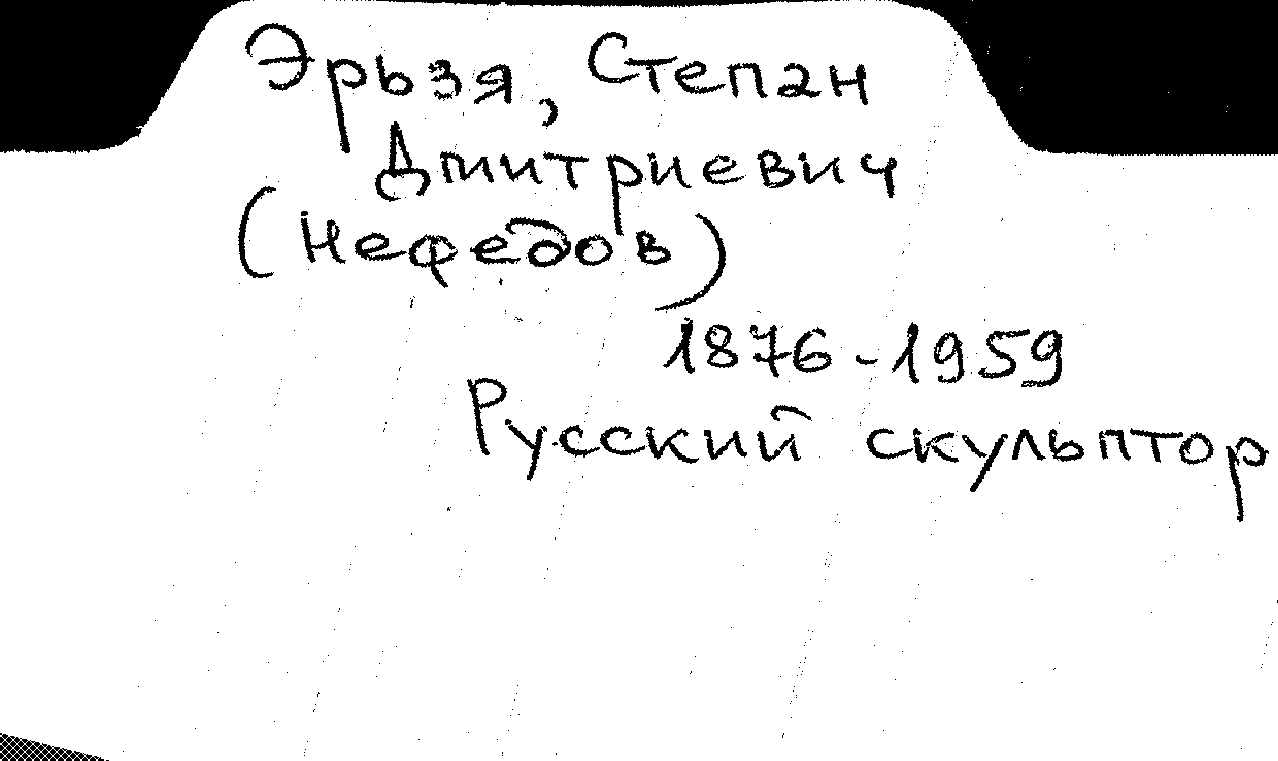 Эрьзя, Степан
Дмитриевич
(Нефедов)
1876-1959
Русский скульптор